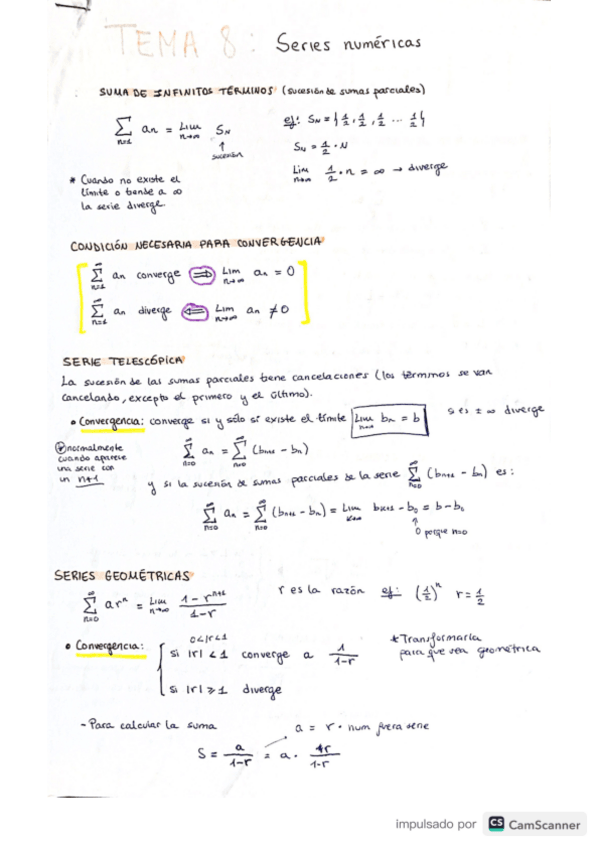 TEMA 8: Series numéricas
SUMA DE INFINITOS TÉRMINOS (sucesión de sumas parciales)
∑ n=1 an = Lim n→∞ SN
↑
sucesión
ej: SN = { 1/2, 1/2, 1/2 ... 1/2 }
SN = 1/2 · N
Lim n→∞ 1/2 · n = ∞ → diverge
* Cuando no existe el
límite o tiende a ∞
la serie diverge.
CONDICIÓN NECESARIA PARA CONVERGENCIA
∑ n=1 ∞ an converge ⟹ Lim n→∞ an = 0
∑ n=1 ∞ an diverge ⟸ Lim n→∞ an ≠ 0
SERIE TELESCÓPICA
La sucesión de las sumas parciales tiene cancelaciones (los términos se van
cancelando, excepto el primero y el último).
• Convergencia: converge si y sólo si existe el límite Lim n→∞ bn = b
si es ± ∞ diverge
normalmente
cuando aparece
una serie con
un n+1
∑ n=0 ∞ an = ∑ n=0 ∞ (bn+1 - bn)
y si la sucesión de sumas parciales de la serie ∑ n=0 ∞ (bn+1 - bn) es:
∑ n=0 ∞ an = ∑ n=0 ∞ (bn+1 - bn) = Lim k→∞ bk+1 - b0 = b - b0
↑
0 porque n=0
SERIES GEOMÉTRICAS
∑ n=0 ∞ ar^n = Lim n→∞ (1 - r^n+1)/(1 - r)
r es la razón ej: (1/2)^n r = 1/2
• Convergencia:
0<|r|<1
si |r| < 1 converge a 1/(1-r)
si |r| ≥ 1 diverge
* Transformarla
para que sea geométrica
- Para calcular la suma
a = r · num fuera serie
S = a/(1-r) = a ·
impulsado por CS CamScanner